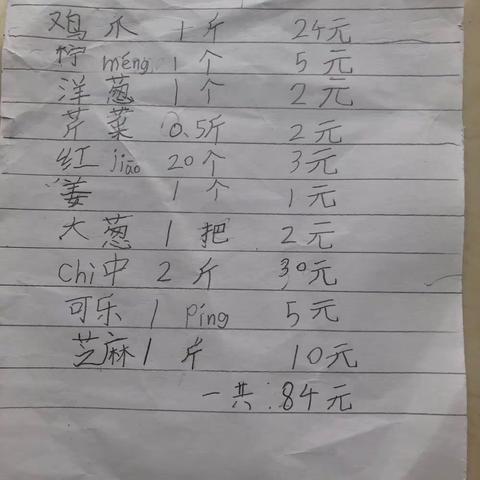 鸡爪 1斤 24元
柠méng 1个 5元
洋葱 1个 2元
芹菜 0.5斤 2元
红jiāo 20个 3元
姜 1个 1元
大葱 1把 2元
chi中 2斤 30元
可乐 1 píng 5元
芝麻 1斤 10元
一共:84元